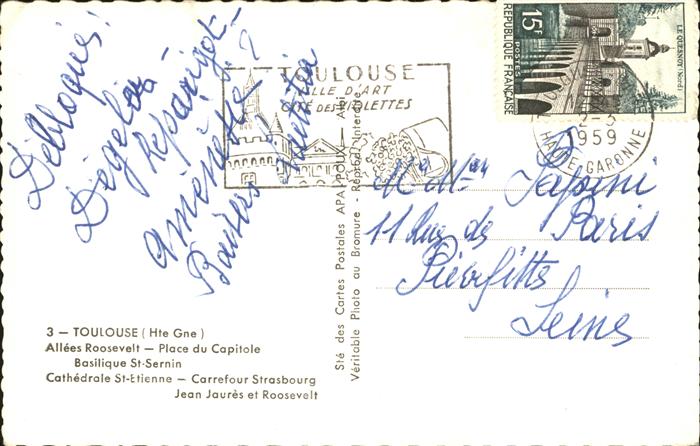 Débloqués!
Dégelée
Baisers
TOULOUSE
VILLE D'ART
CITÉ DES VIOLETTES
15F
POSTES
RÉPUBLIQUE FRANÇAISE
LE QUESNOY (Nord)
1959
HAUTE-GARONNE
Papini
11 Rue de Paris
Pierfitte
Seine
3 — TOULOUSE (Hte Gne)
Allées Roosevelt — Place du Capitole
Basilique St-Sernin
Cathédrale St-Etienne — Carrefour Strasbourg
Jean Jaurès et Roosevelt
Sté des Cartes Postales APA-POUX — Albi
Véritable Photo au Bromure - Reprod. Interdite